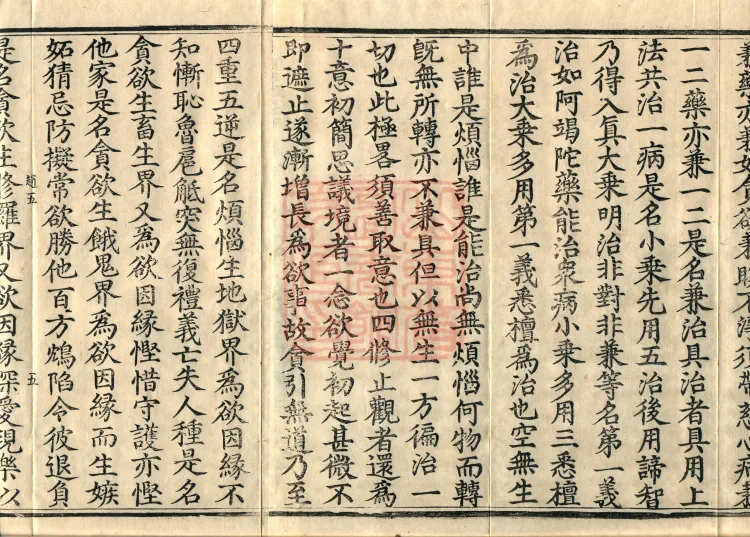 一二藥亦兼一二是名兼治具治者具用上
法共治一病是名小乗先用五治後用諦智
乃得入眞大乗明治非對非兼等名第一義
治如阿竭陀藥能治衆病小乗多用三悉檀
爲治大乗多用第一義悉檀爲治也空無生
中誰是煩惱誰是能治尚無煩惱何物而轉
旣無所轉亦不兼具但以無生一方徧治一
切也此極畧須善取意也四修止觀者還爲
十意初簡思議境者一念欲覺初起甚微不
即遮止遂漸增長爲欲事故貪引無道乃至
四重五逆是名煩惱生地獄界爲欲因緣不
知慚恥魯扈觝突無復禮義亡失人種是名
貪欲生畜生界又爲欲因緣慳惜守護亦慳
他家是名貪欲生餓鬼界爲欲因緣而生嫉
妬猜忌防擬常欲勝他百方鴆陷令彼退負
趙五
五
是名貪欲生修羅界又欲因緣深愛現樂以